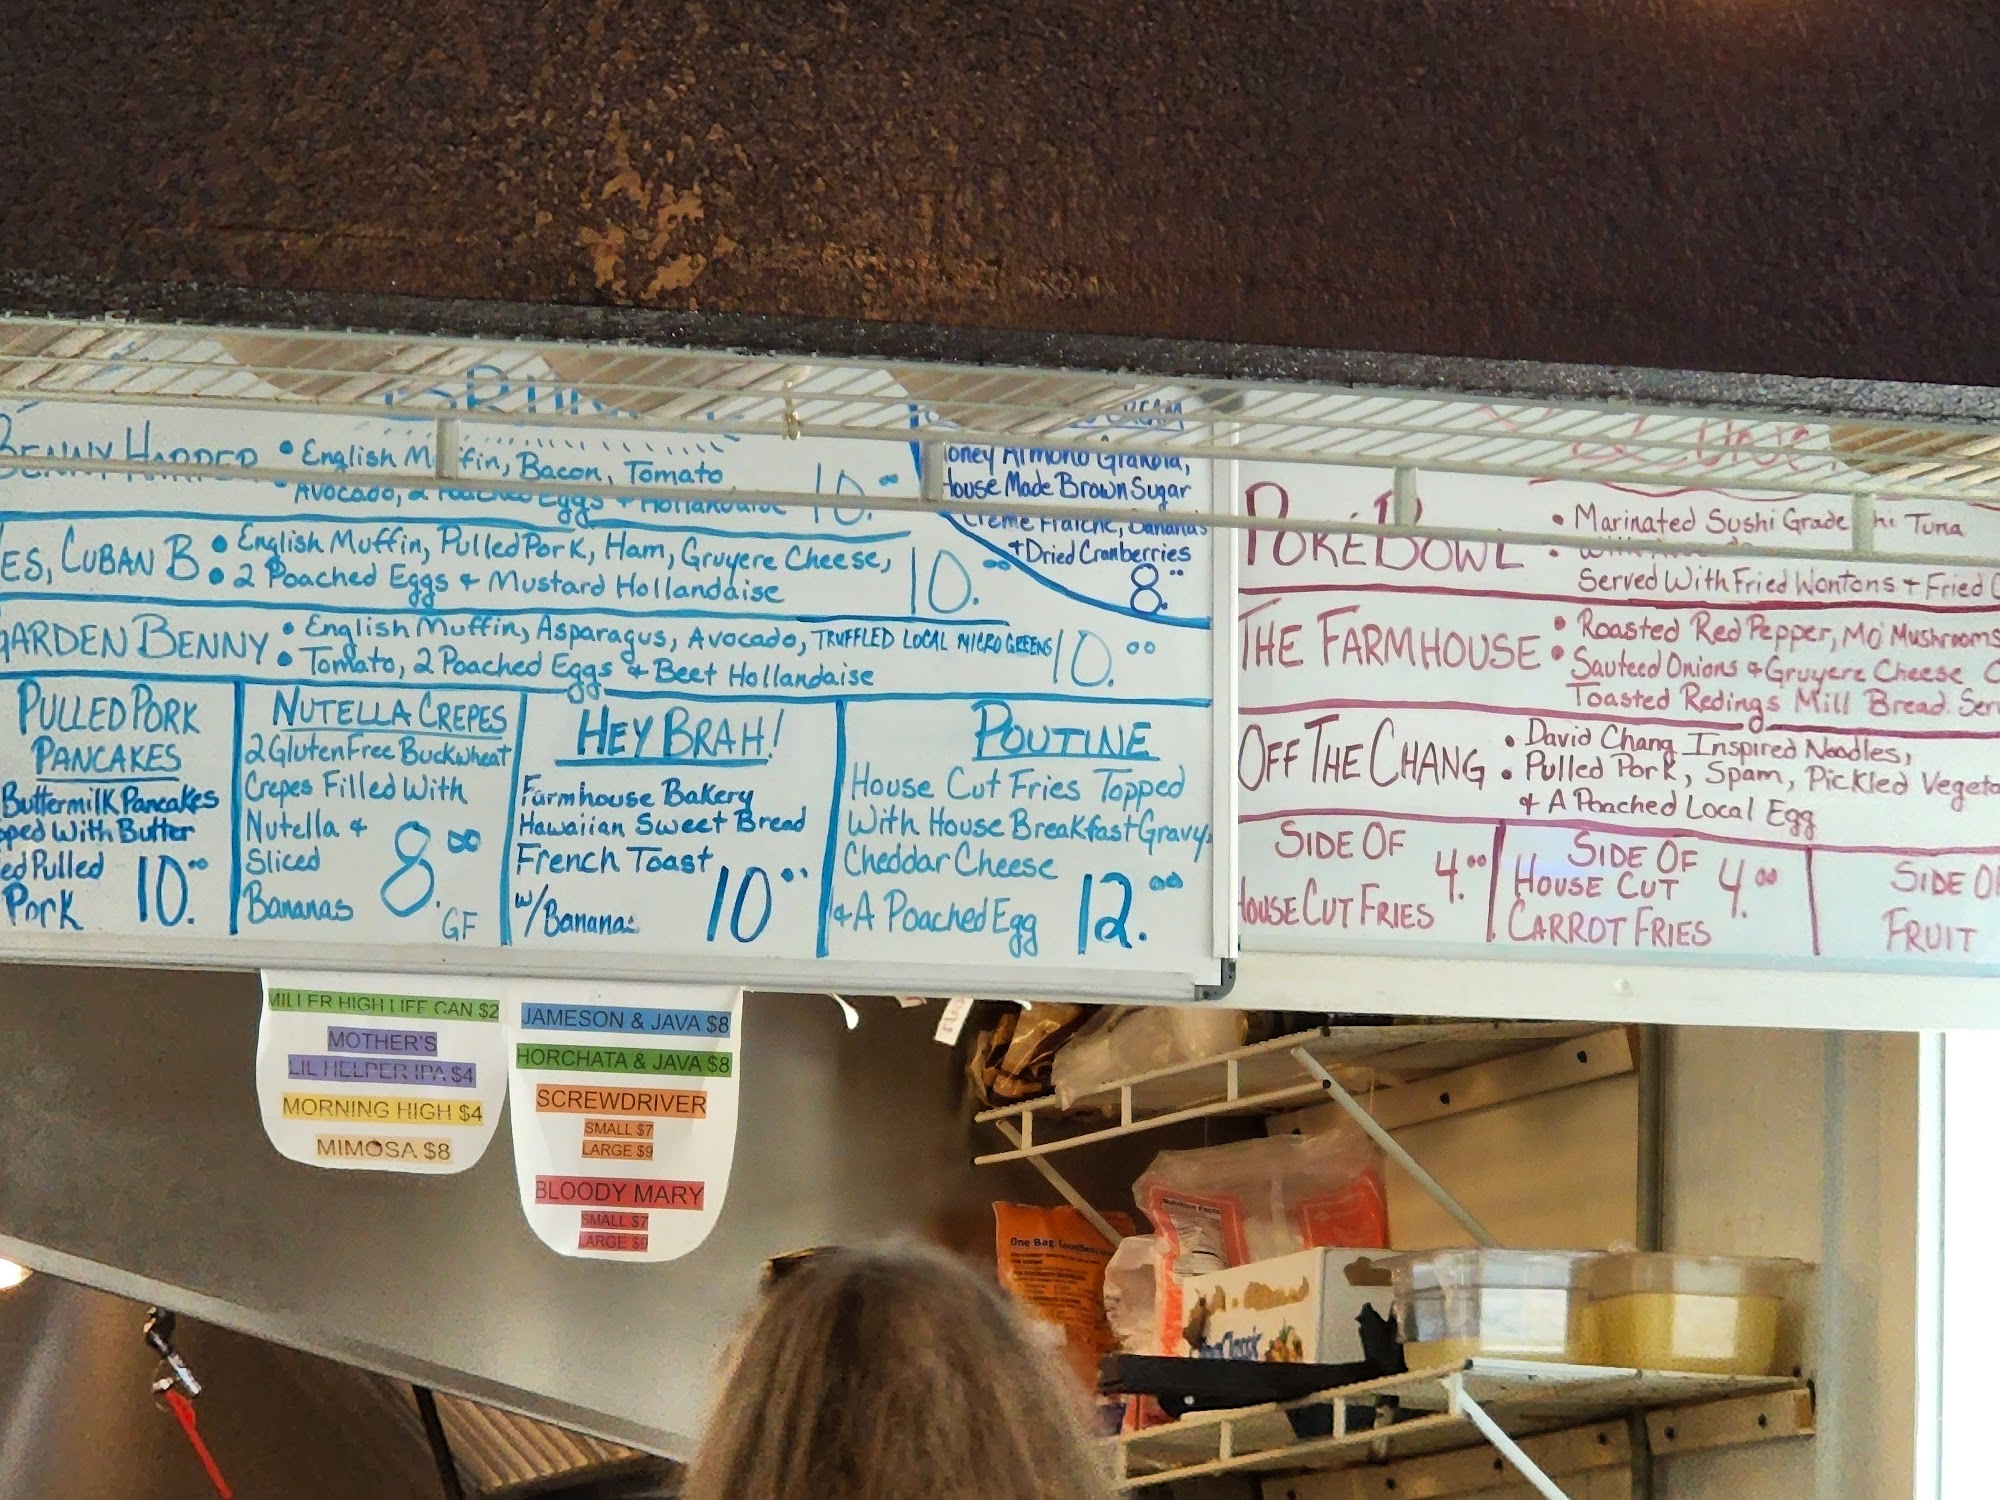 BRUNCH
BENNY HARPER
• English Muffin, Bacon, Tomato
Avocado, 2 Poached Eggs & Hollandaise
10.00
CUBAN B
• English Muffin, Pulled Pork, Ham, Gruyere Cheese,
• 2 Poached Eggs & Mustard Hollandaise
10.00
GARDEN BENNY
• English Muffin, Asparagus, Avocado, TRUFFLED LOCAL MICRO GREENS
• Tomato, 2 Poached Eggs & Beet Hollandaise
10.00
Almond Granola,
House Made Brown Sugar
Creme Fraiche, Bananas
+ Dried Cranberries
8.00
PULLED PORK
PANCAKES
Buttermilk Pancakes
With Butter
Pulled
Pork
10.00
NUTELLA CREPES
2 Gluten Free Buckwheat
Crepes Filled With
Nutella &
Sliced
Bananas
8.00
GF
HEY BRAH!
Farmhouse Bakery
Hawaiian Sweet Bread
French Toast
w/Bananas
10.00
POUTINE
House Cut Fries Topped
With House Breakfast Gravy,
Cheddar Cheese
& A Poached Egg
12.00
POKÉ BOWL
• Marinated Sushi Grade Tuna
Served With Fried Wontons + Fried
THE FARMHOUSE
• Roasted Red Pepper, Mo' Mushrooms
• Sauteed Onions & Gruyere Cheese
Toasted Redings Mill Bread.
OFF THE CHANG
• David Chang Inspired Noodles,
• Pulled Pork, Spam, Pickled
& A Poached Local Egg
SIDE OF
HOUSE CUT FRIES
4.00
SIDE OF
HOUSE CUT
CARROT FRIES
4.00
SIDE OF
FRUIT
MILLER HIGH LIFE CAN $2
MOTHER'S
LIL HELPER IPA $4
MORNING HIGH $4
MIMOSA $8
JAMESON & JAVA $8
HORCHATA & JAVA $8
SCREWDRIVER
SMALL $7
LARGE $9
BLOODY MARY
SMALL $7
LARGE $9
Nutrition Facts
One Bag.
Classic